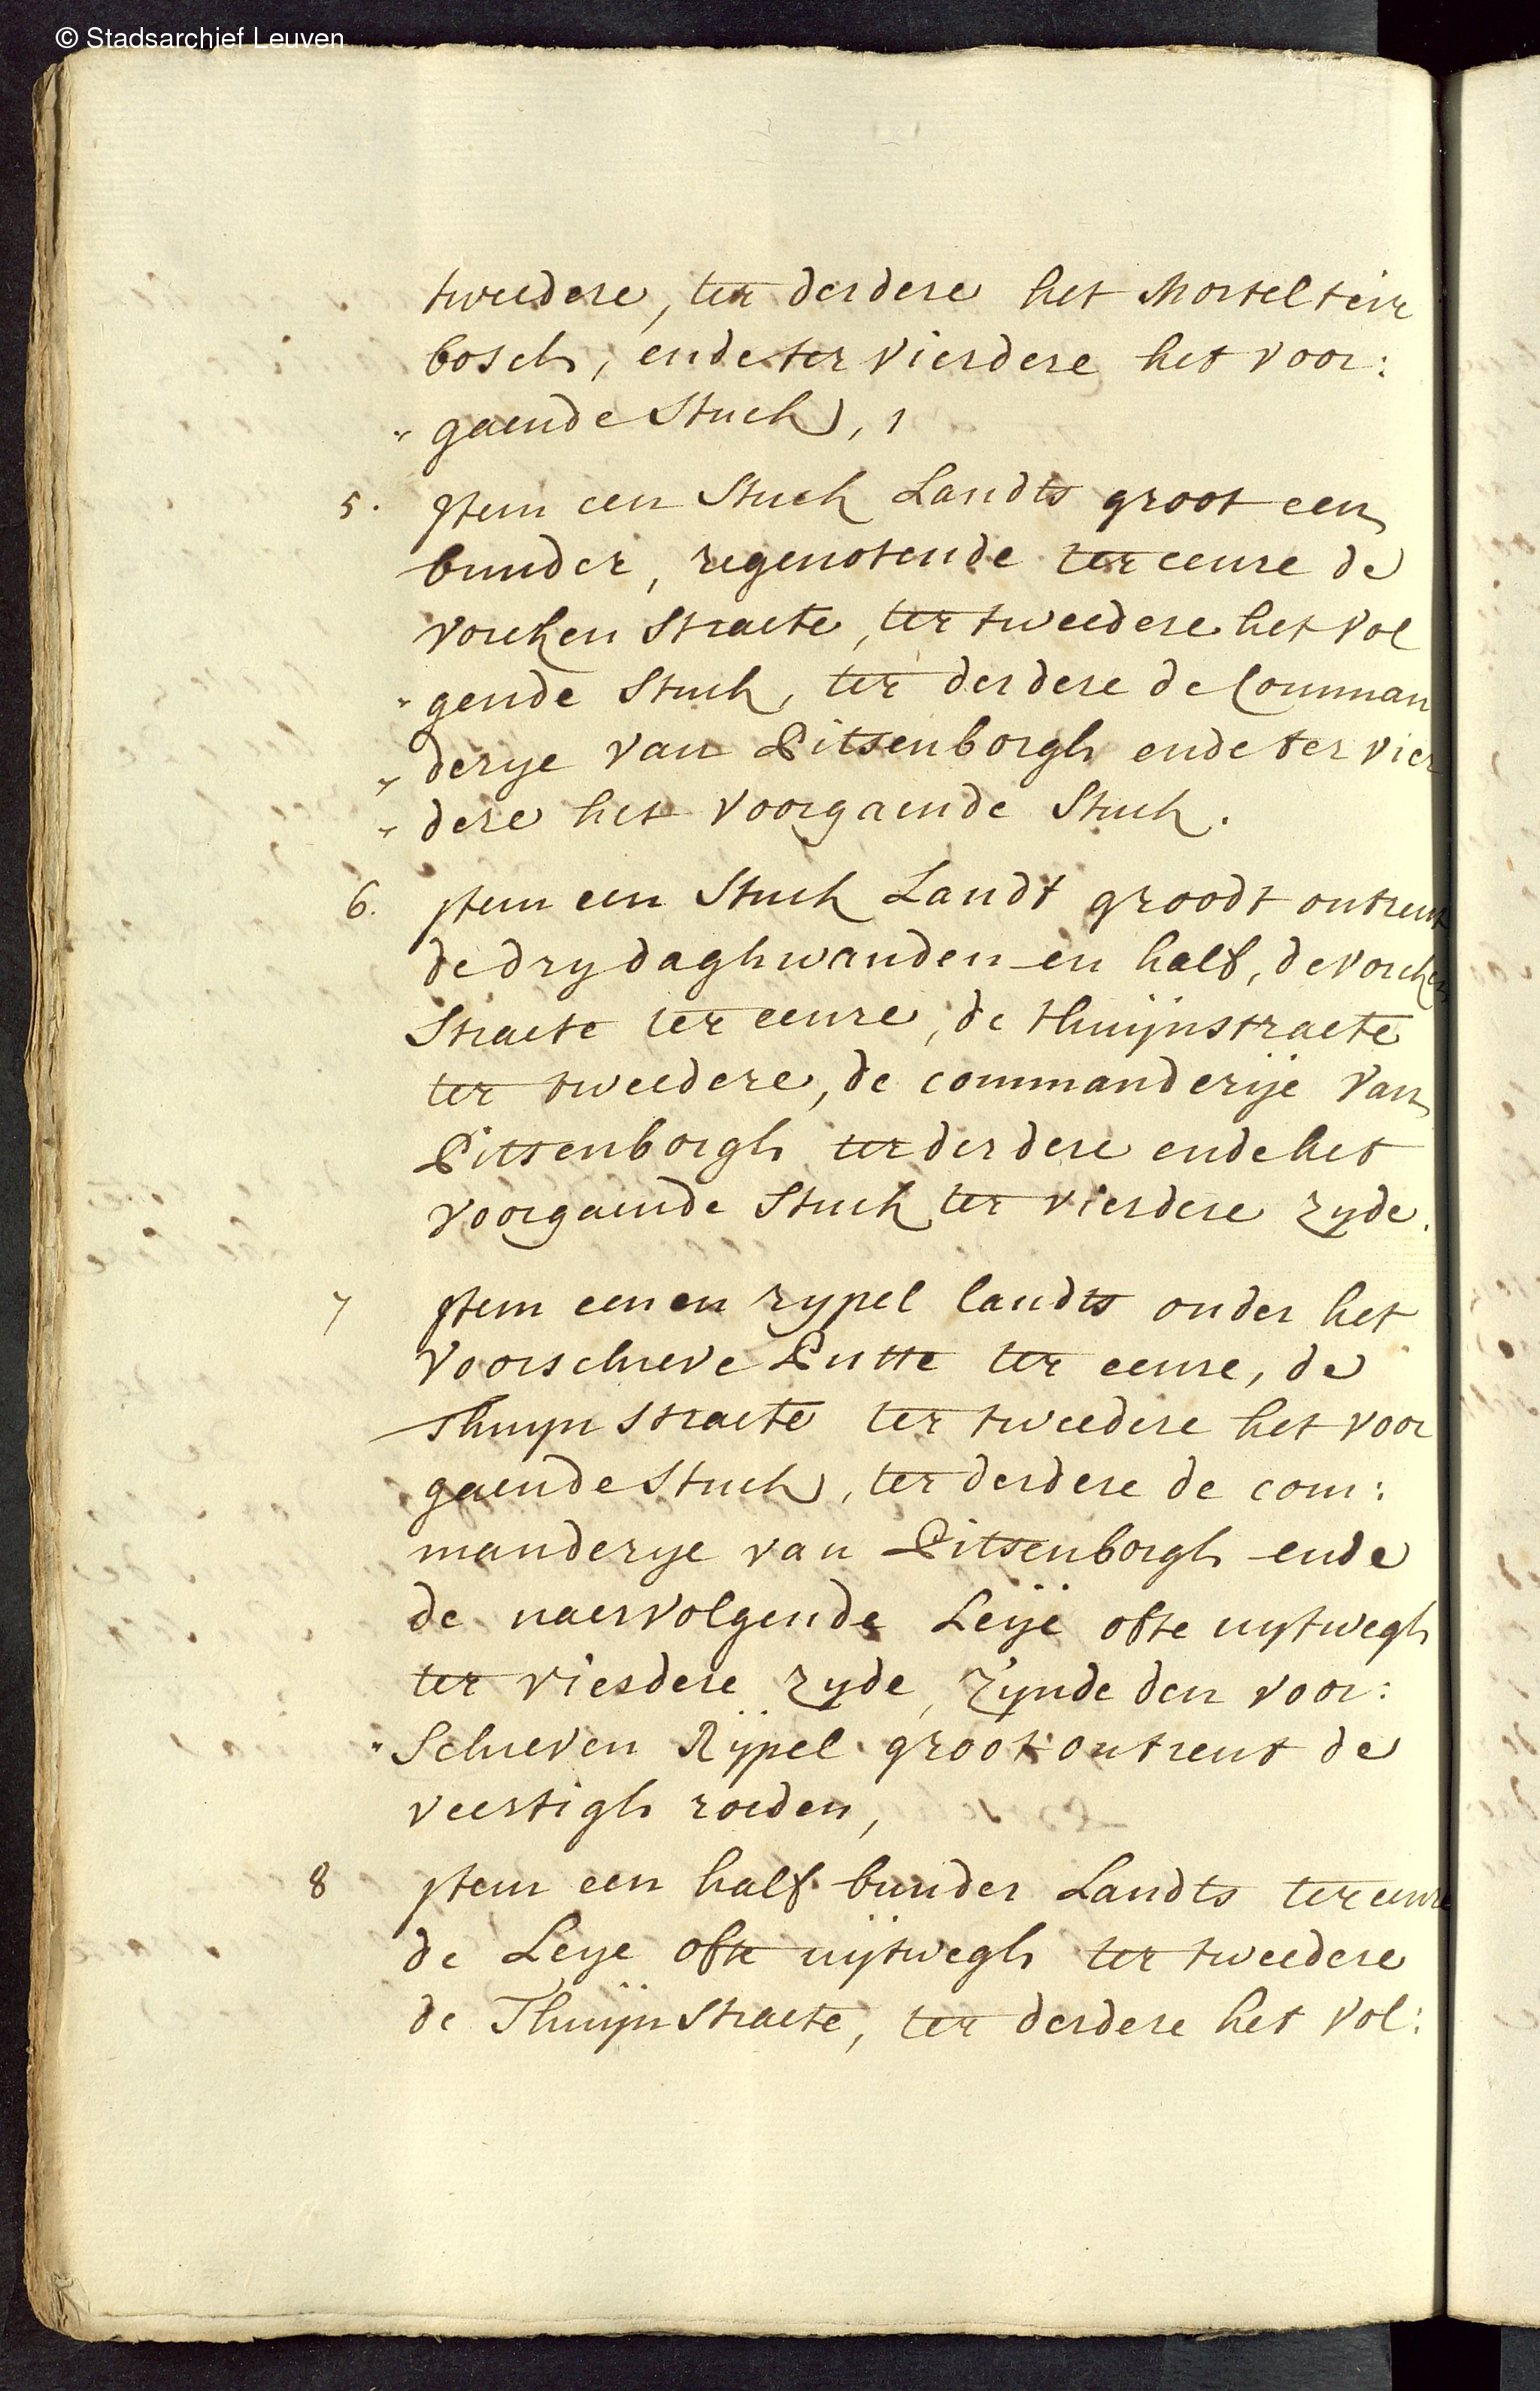 © Stadsarchief Leuven
tweedere, ter derdere het Mortelteir
bosch, ende ter vierdere het voor:
„ gaende Stuck, 1
5. Item een Stuck Landts groot een
bunder, regenotende ter eenre de
vorcken Straete, ter tweedere het vol
„ gende Stuck, ter derdere de Comman
„ derye van Pitsenborgh ende ter vier
„ dere het voorgaende Stuck.
6. Item een Stuck Landt groodt ontrent
de dry daghwanden en half, de vorcken
Straete ter eenre, de thuÿnstraete
ter tweedere, de commanderije van
Pittsenborgh ter derdere ende het
voorgaende Stuck ter vierdere zyde.
7 Item eenen rypel landts onder het
voorschreve Putte ter eenre, de
Thuyn Straete ter tweedere het voor
„ gaende Stuck, ter derdere de com:
manderye van Pitsenborgh ende
de naervolgende Leÿe ofte uytwegh
ter vierdere zyde, zynde den voor:
„ Schreven Rÿpel groot ontrent de
veertigh roeden,
8 Item een half bunder Landts ter eenre
de Leye ofte uijtwegh ter tweedere
de Thuÿn Straete, ter derdere het vol: